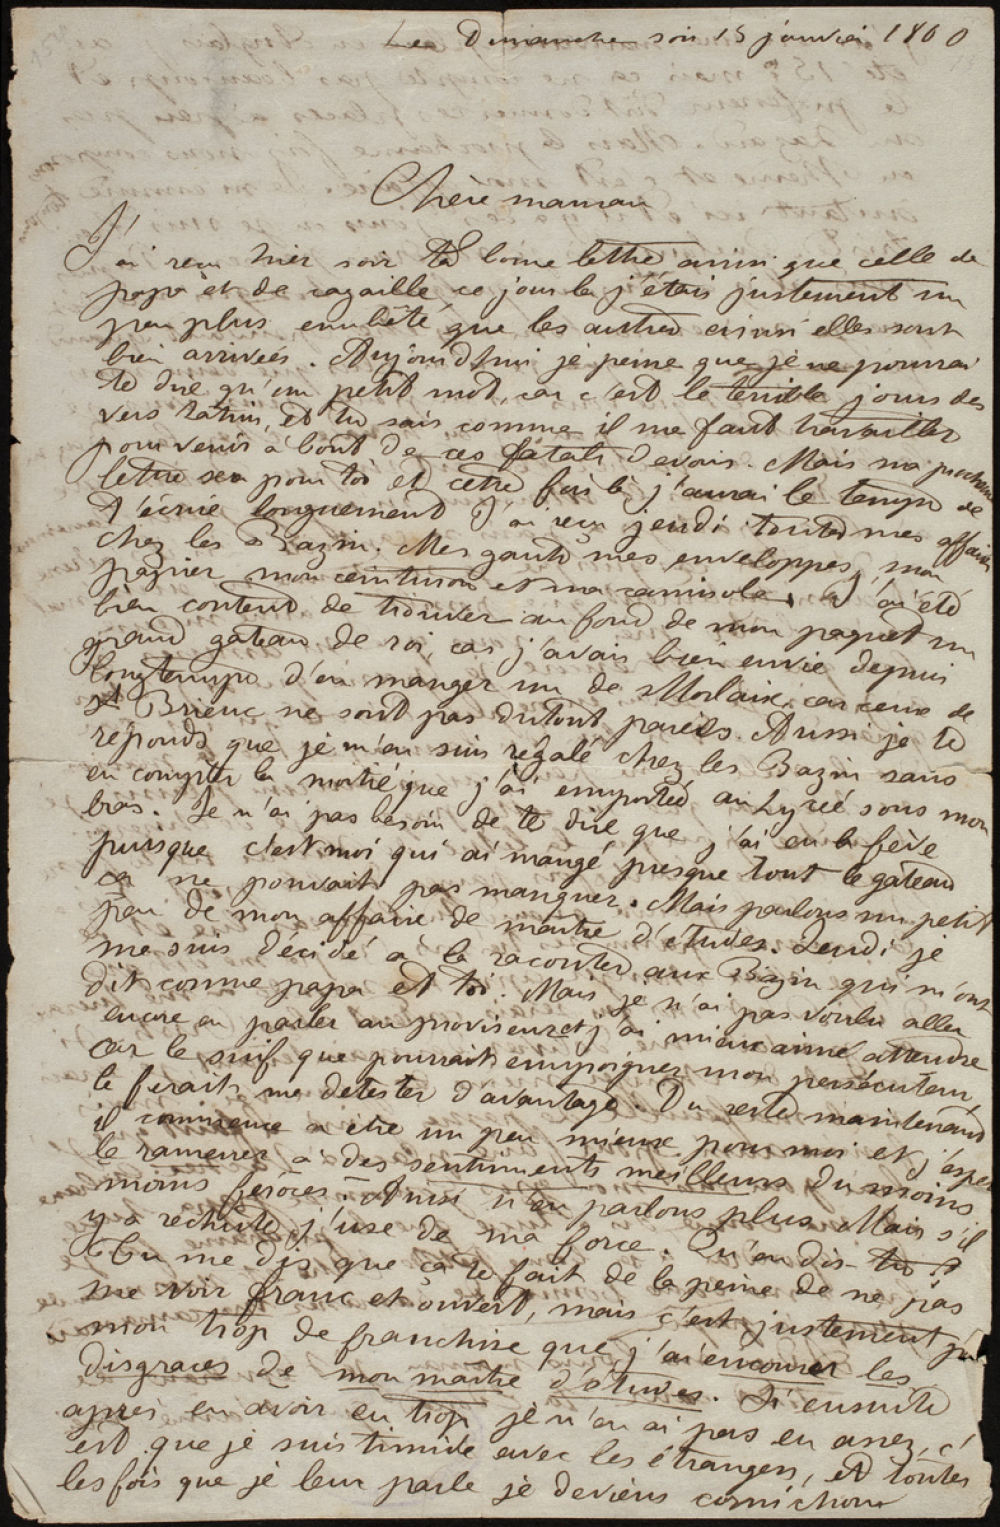 Le Dimanche soir 15 janvier 1860
Chère maman
J'
ai reçu hier soir ta bonne lettre ainsi que celle de
papa et de cagaille, ce jour là j'étais justement un
peu plus embêté que les autres ainsi elles sont
bien arrivées. Aujourd'hui je pense que je ne pourrai
te dire qu'un petit mot, car c'est le terrible jour des
vers latins, et tu sais comme il me faut travailler
pour venir à bout de ces fatals devoirs. Mais ma prochaine
lettre sera pour toi et cette fois là j'aurai le temps de
t'écrire longuement J'ai reçu jeudi toutes mes affaires
chez les Bazin. Mes gants mes enveloppes, mon
papier mon ceinturon et ma camisole. J'ai été
bien content de trouver au fond de mon paquet un
grand gâteau de roi, car j'avais bien envie depuis
longtemps d'en manger un de Morlaix, car ceux de
St Brieuc ne sont pas du tout pareils. Aussi je te
réponds que je m'en suis régalé chez les Bazin sans
en compter la moitié que j'ai emportée au Lycée sous mon
bras. Je n'ai pas besoin de te dire que j'ai eu la fève
puisque c'est moi qui ai mangé presque tout le gateau
ça ne pouvait pas manquer. Mais parlons un petit
peu de mon affaire de maître d'études. Jeudi je
me suis décidé à la raconter aux Bazin qui m'ont
dit comme papa et toi. Mais je n'ai pas voulu aller
encore en parler au proviseur et j'ai mieux aimé attendre
car le suif que pourrait empoigner mon persécuteur,
le ferait me détester d'avantage. Du reste maintenant
il commence à être un peu mieux pour moi et j'espère
le ramener à des sentiments meilleurs du moins
moins féroces. Ainsi n'en parlons plus. Mais s'il
y a rechute j'use de ma force. Qu'en dis-tu ?
Tu me dis que ça te fait de la peine de ne pas
me voir franc et ouvert, mais c'est justement par
mon trop de franchise que j'ai encouru les
disgraces de mon maître d'études. Si ensuite
après en avoir eu trop je n'en ai pas eu assez, c'
est que je suis timide avec les étrangers, et toutes
les fois que je leur parle je deviens cornichon